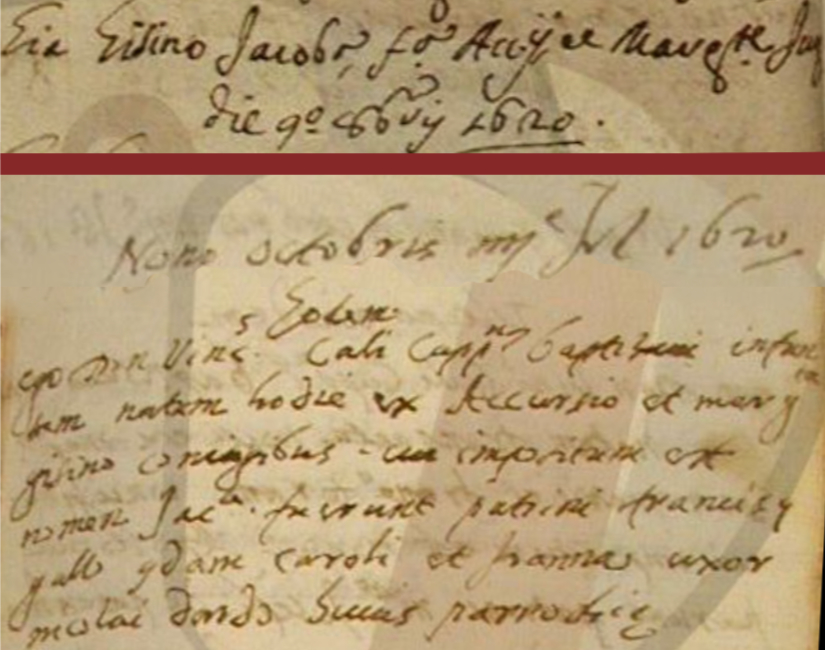 Gisino Jacobo, f.o Accij et Marg.te Jug
die 9.o 8bris 1620.
Nono octobris mj.e Jvl 1620
Eodem
ego Don Vinc.s Cali Capp.nus baptizavi infan
tem natam hodie ex Accursio et marg.ta
gisino coniugibus - cui impositum est
nomen Jac.a. fuerunt patrini francisc9
gallo qdam Caroli et Joanna uxor
nicolai dardo huius parrochie